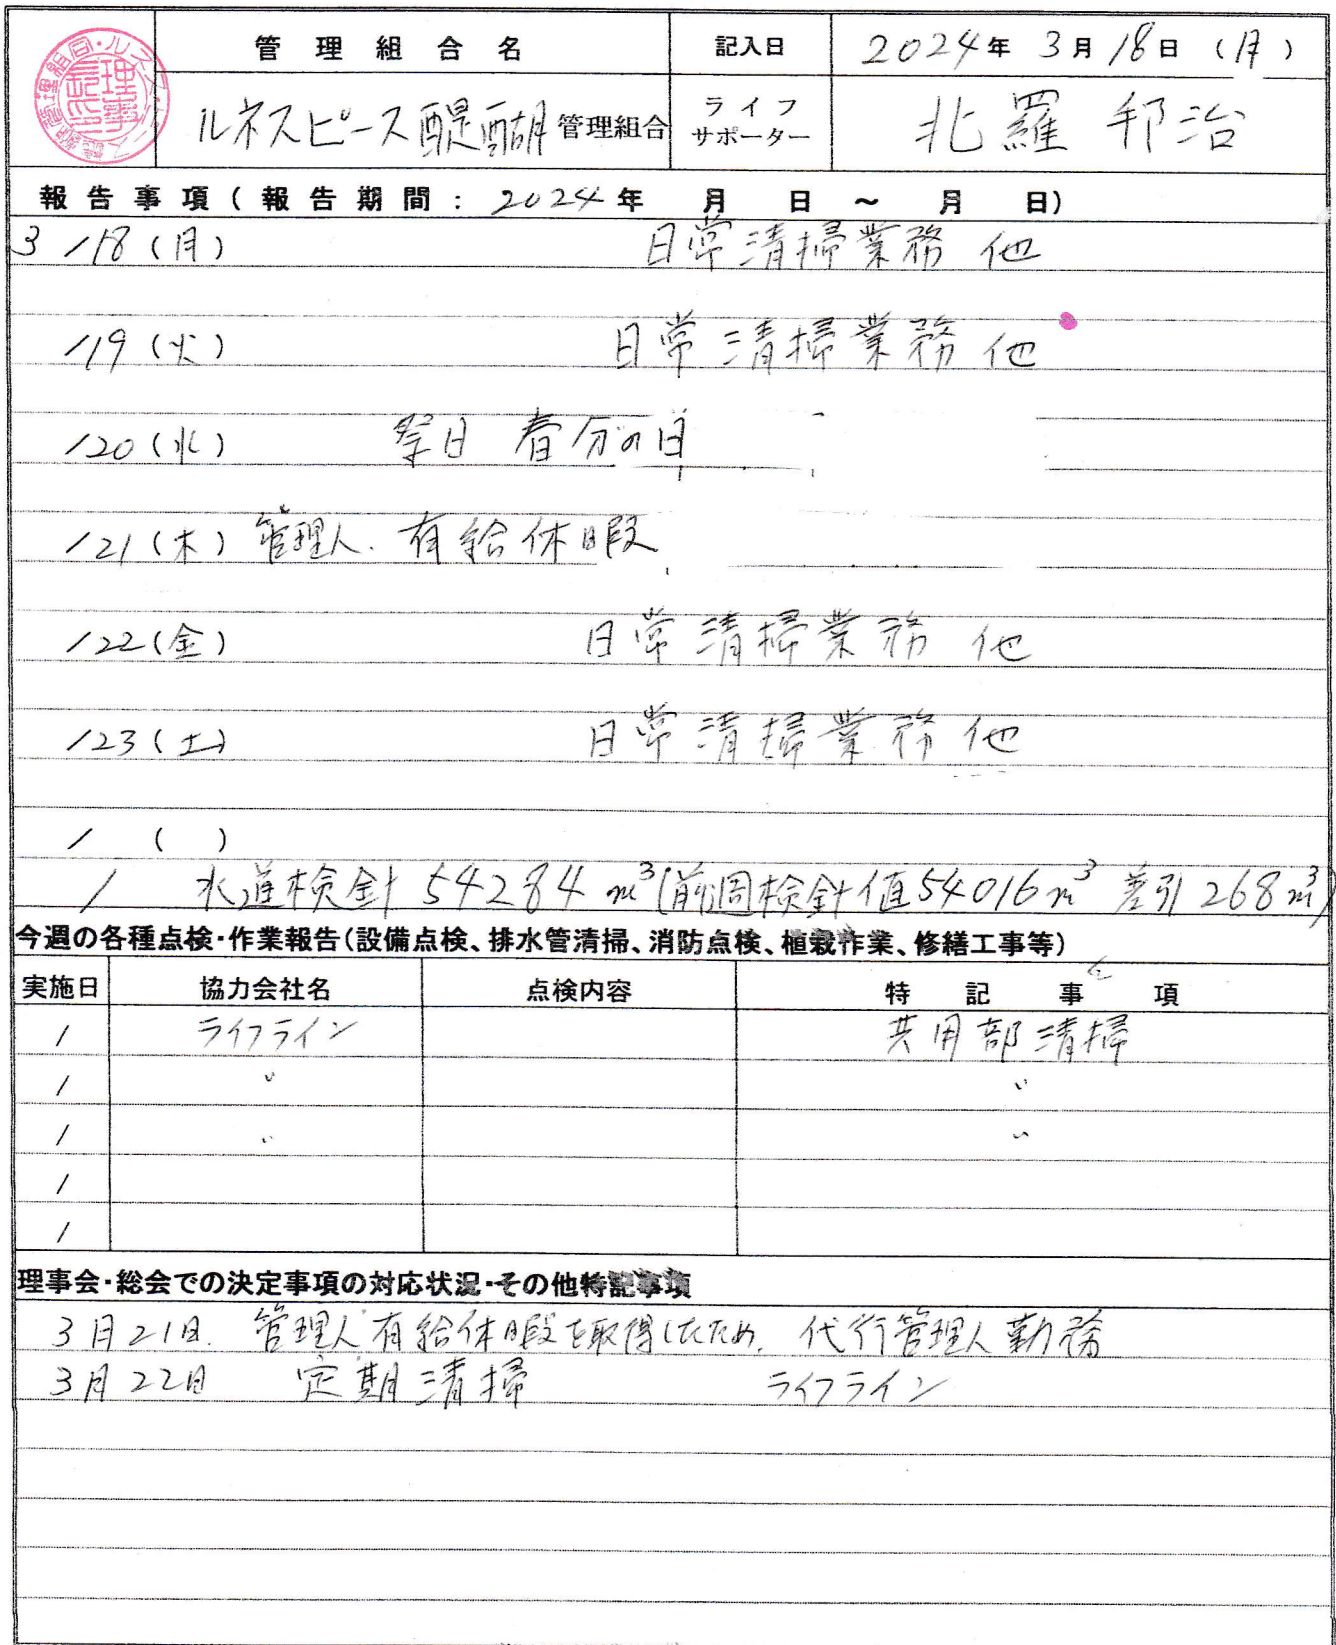 管理組合名 記入日 2024年 3月 18日 (月)
ルネスピース醍醐 管理組合 ライフサポーター 北羅 邦治
報告事項(報告期間: 2024年 月 日 ~ 月 日)
3/18(月) 日常清掃業務 他
/19(火) 日常清掃業務 他
/20(水) 祭日 春分の日
/21(木) 管理人. 有給休暇
/22(金) 日常清掃業務 他
/23(土) 日常清掃業務 他
/ ( )
/ 水道検針 54284 m³(前週検針値54016m³ 差引268m³)
今週の各種点検・作業報告(設備点検、排水管清掃、消防点検、植栽作業、修繕工事等)
実施日 協力会社名 点検内容 特記事項
/ ライフライン 共用部清掃
/ 〃 〃
/ 〃 〃
/
/
理事会・総会での決定事項の対応状況・その他特記事項
3月21日. 管理人有給休暇を取得したため. 代行管理人勤務
3月22日 定期清掃 ライフライン